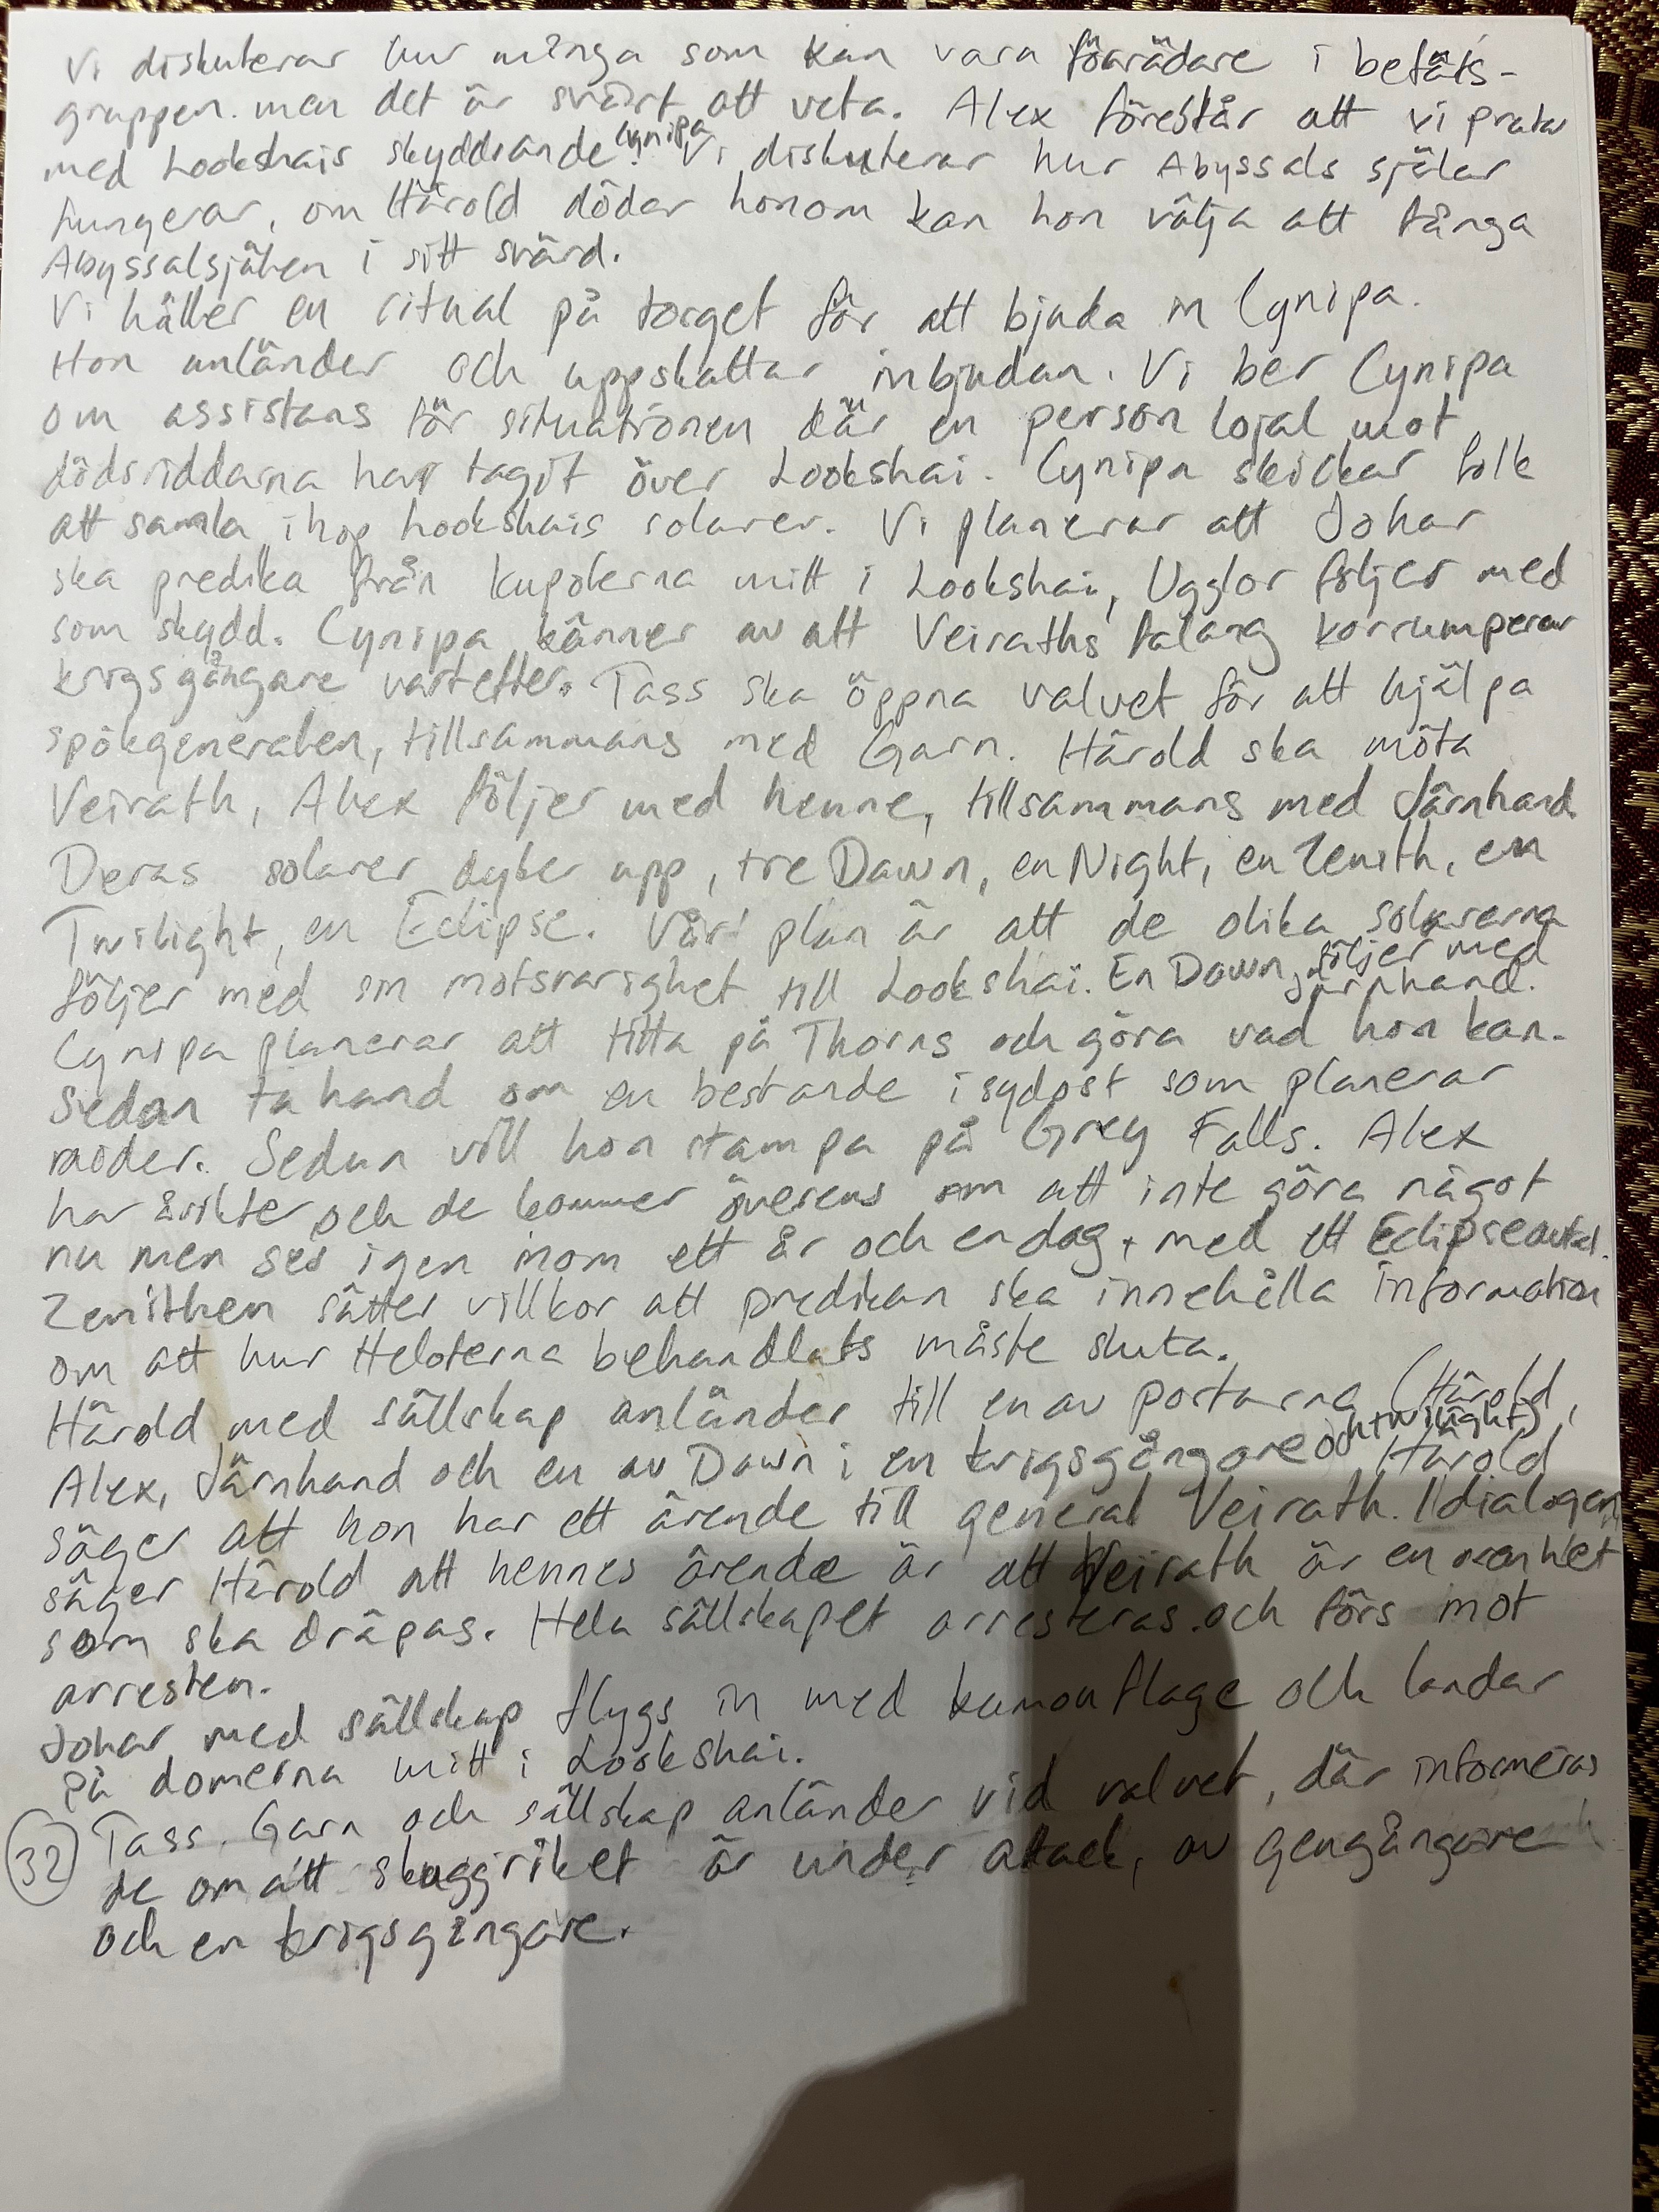 Vi diskuterar hur många som kan vara förrädare i befäls-
gruppen. men det är svårt att veta. Alex föreslår att vi pratar
med Lookshais skyddsande Cynipa. Vi diskuterar hur Abyssals själar
fungerar, om Härold dödar honom kan hon välja att fånga
Abyssalsjälen i sitt svärd.
Vi håller en ritual på torget för att bjuda in Cynipa.
Hon anländer och uppskattar inbjudan. Vi ber Cynipa
om assistans för situationen där en person lojal mot
dödsriddarna har tagit över Lookshai. Cynipa skickar folk
att samla ihop Lookshais solarer. Vi planerar att Johar
ska predika från kupolerna mitt i Lookshai, Ugglor följer med
som skydd. Cynipa känner av att Veiraths talang korrumperar
krigsgångare vartefter. Tass ska öppna valvet för att hjälpa
spökgeneralen, tillsammans med Garn. Härold ska möta
Veirath, Alex följer med henne, tillsammans med Järnhand.
Deras solarer dyker upp, tre Dawn, en Night, en Zenith, en
Twilight, en Eclipse. Vår plan är att de olika solarerna
följer med sin motsvarighet till Lookshai. En Dawn följer med
Järnhand.
Cynipa planerar att titta på Thorns och göra vad hon kan.
Sedan ta hand om en bestande i sydost som planerar
räder. Sedan vill hon stampa på Grey Falls. Alex
har åsikter och de kommer överens om att inte göra något
nu men ses igen inom ett år och en dag, med ett Eclipseavtal.
Zenithen sätter villkor att predikan ska innehålla information
om att hur Heloterna behandlats måste sluta.
Härold med sällskap anländer till en av portarna (Härold,
Alex, Järnhand och en av Dawn i en krigsgångare och twilight) Härold
säger att hon har ett ärende till general Veirath. I dialogen
säger Härold att hennes ärende är att Veirath är en
som ska dräpas. Hela sällskapet arresteras och förs mot
arresten.
Johar med sällskap flygs in med kamouflage och landar
på domerna mitt i Lookshai.
32 Tass, Garn och sällskap anländer vid valvet, där informeras
de om att skuggriket är under attack, av gengångare
och en krigsgångare.